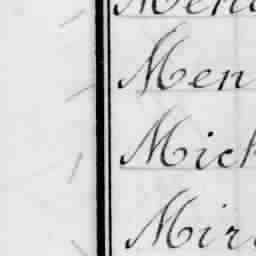 Men
Men
Mich
Mir